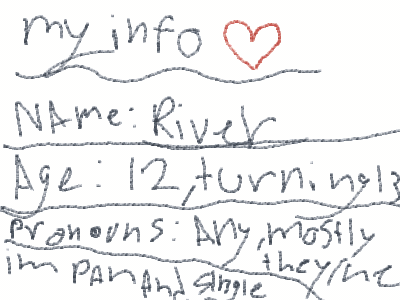 my info
NAme: River
Age: 12, turning 13
pronouns: Any, mostly they/he
im pAn And single